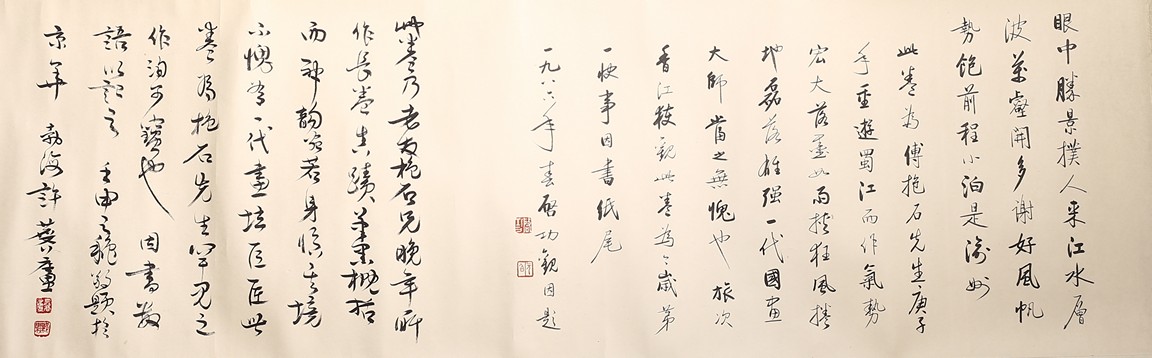 眼中勝景撲人来江水層
波萬壑開多謝好風帆
勢飽前程小泊是渝州
此卷為傅抱石先生庚子
年重遊蜀江而作氣勢
宏大落墨如雨狂風捲
地磊落雄强一代國画
大師當之無愧也 旅次
香江獲觀此卷為歲第
一快事因書紙尾
一九八六年春啓功觀因題
此卷乃老友抱石兄晚年所
作長卷真蹟概括
而神韻宛若身臨其境
不愧為一代畫壇巨匠此
卷為抱石先生罕見之
作洵可寶也 因書數
語以記之 壬申之穐敬題於
京華 勃海許麐廬